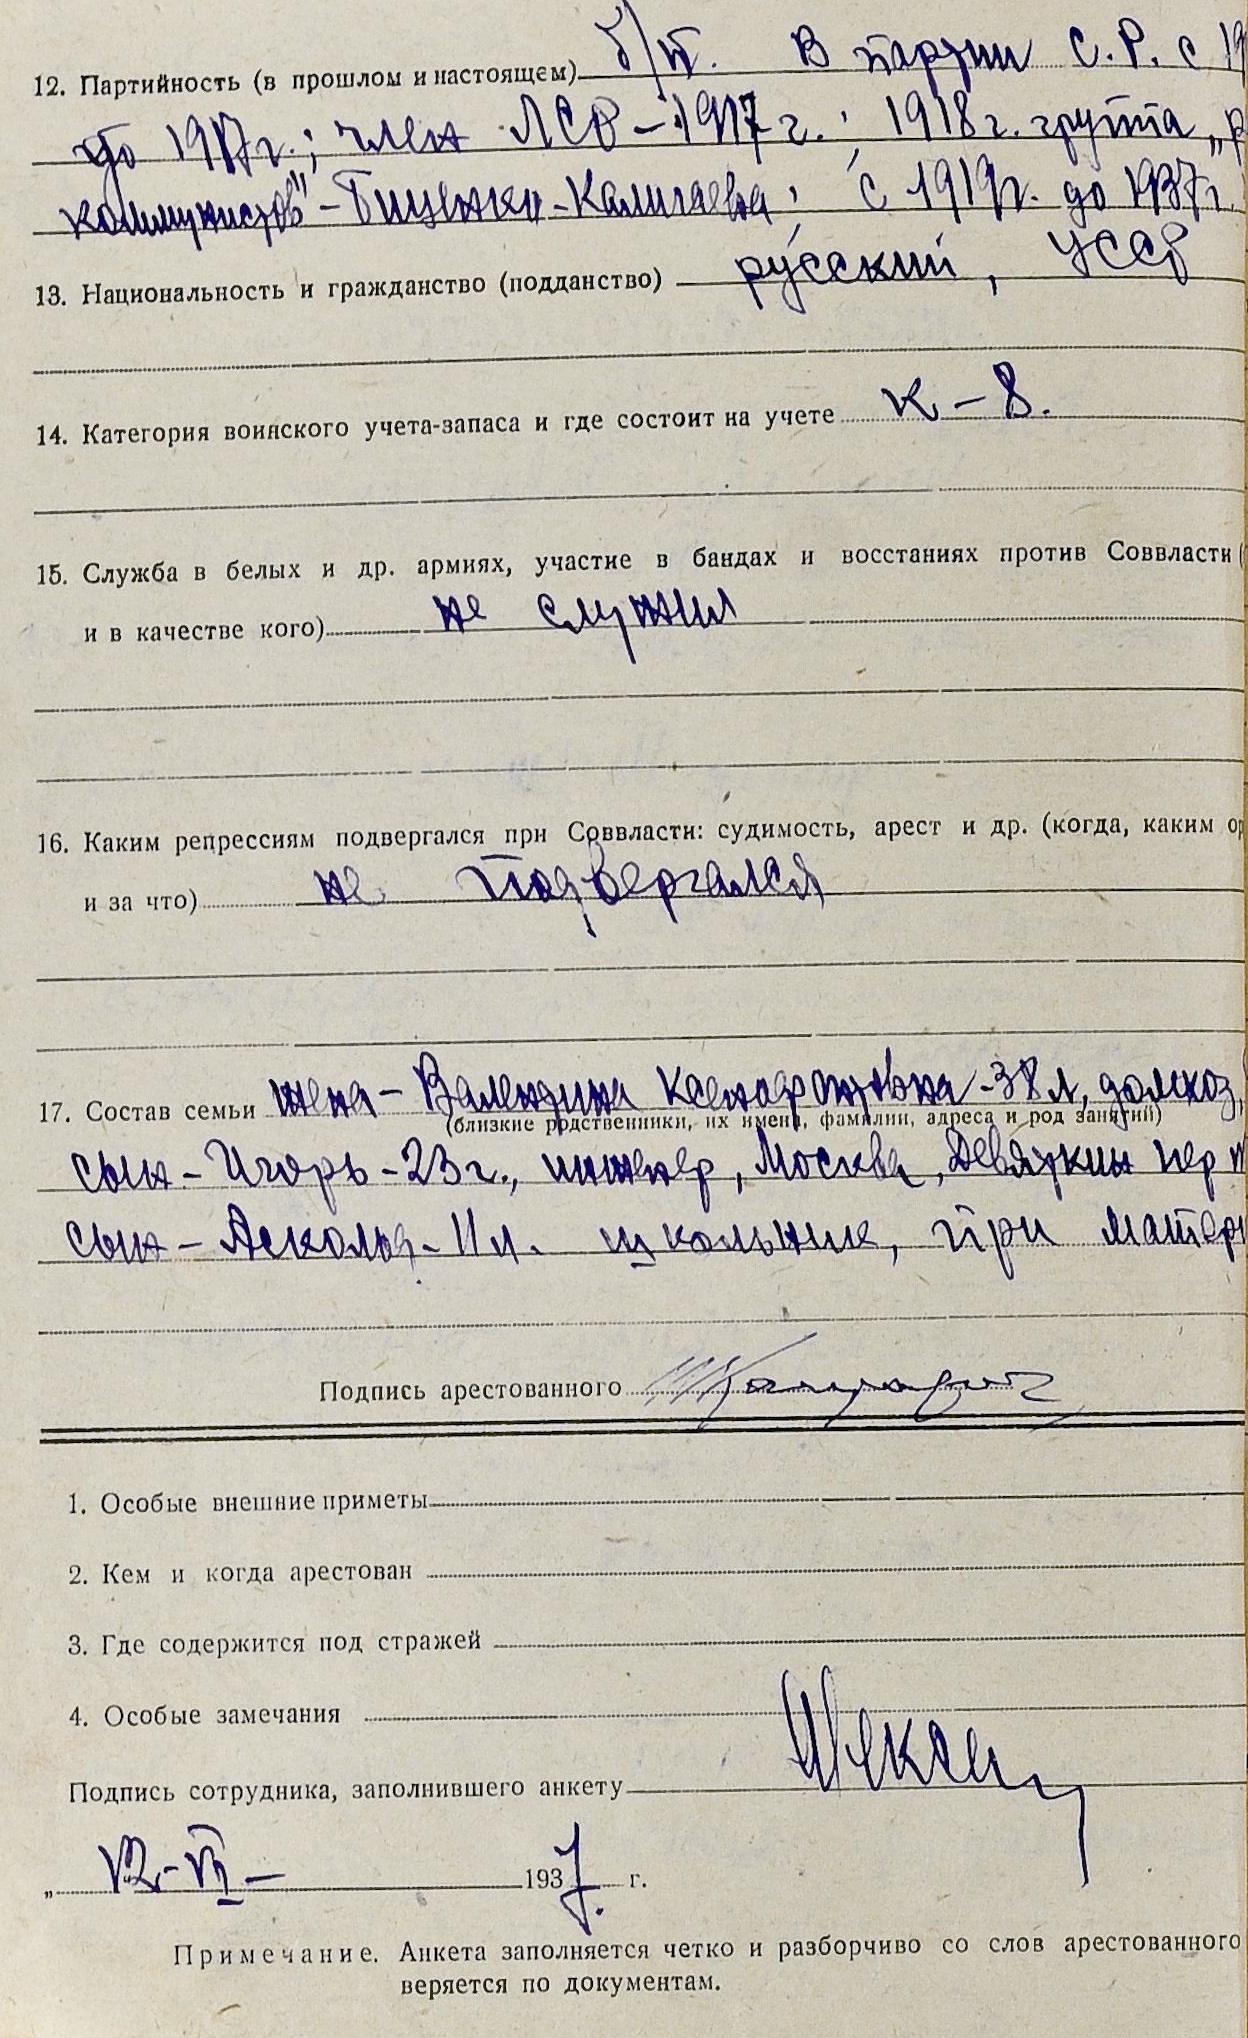 12. Партийность (в прошлом и настоящем) б/п. В партии С.Р. с 19
до 1917г.; член ЛСР – 1917 г.; 1918 г. группа „р
коммунистов" – Биценко-Колигаева; с 1919г. до 1937г.
13. Национальность и гражданство (подданство) русский, УССР
14. Категория воинского учета-запаса и где состоит на учете К – 8.
15. Служба в белых и др. армиях, участие в бандах и восстаниях против Соввласти (
и в качестве кого) не служил
16. Каким репрессиям подвергался при Соввласти: судимость, арест и др. (когда, каким ор
и за что) не подвергался
17. Состав семьи жена – Валентина Ксенофонтовна - 38 л, домхоз,
(близкие родственники, их имена, фамилии, адреса и род занятий)
сын – Игорь – 23 г., инженер, Москва, Девяткин пер
сын – Аскольд – 11 л. школьник, при матери
Подпись арестованного
1. Особые внешние приметы
2. Кем и когда арестован
3. Где содержится под стражей
4. Особые замечания
Подпись сотрудника, заполнившего анкету
„ 12 - VI – 1937 г.
Примечание. Анкета заполняется четко и разборчиво со слов арестованного
веряется по документам.